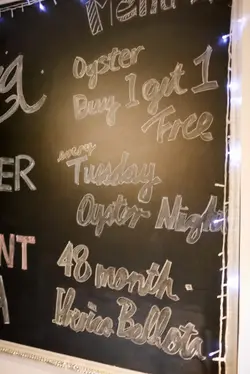 Menu
Oyster
Buy 1 get 1
Free
every
Tuesday
Oyster Night
48 month
Iberica Bellota